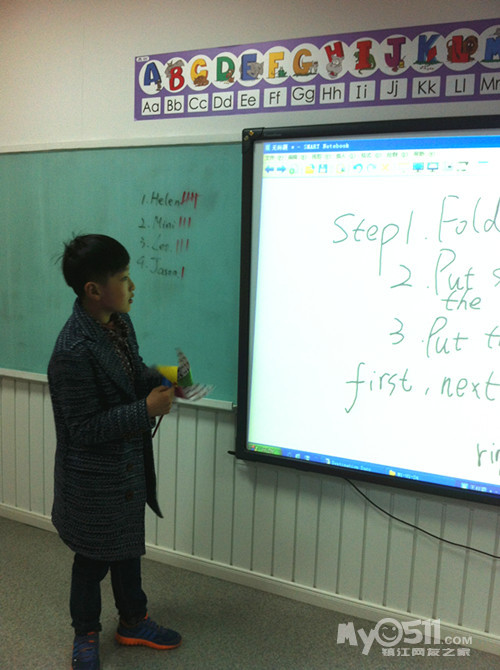 A B C D E F G H I J K L M
Aa Bb Cc Dd Ee Ff Gg Hh Ii Jj Kk Ll Mm
SMART Notebook
1. Helen
2. Mini
3. Leo
4. Jason
Step 1. Fold
2. Put s
the
3. Put t
first, next
rin
My0511.com
镇江网友之家